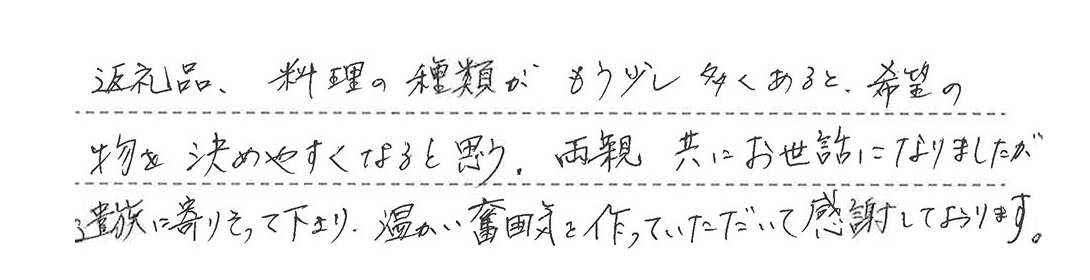 返礼品、料理の種類がもう少し多くあると、希望の
物を決めやすくなると思う。両親共にお世話になりましたが
遺族に寄りそって下さり、温かい奮囲気を作っていただいて感謝しております。